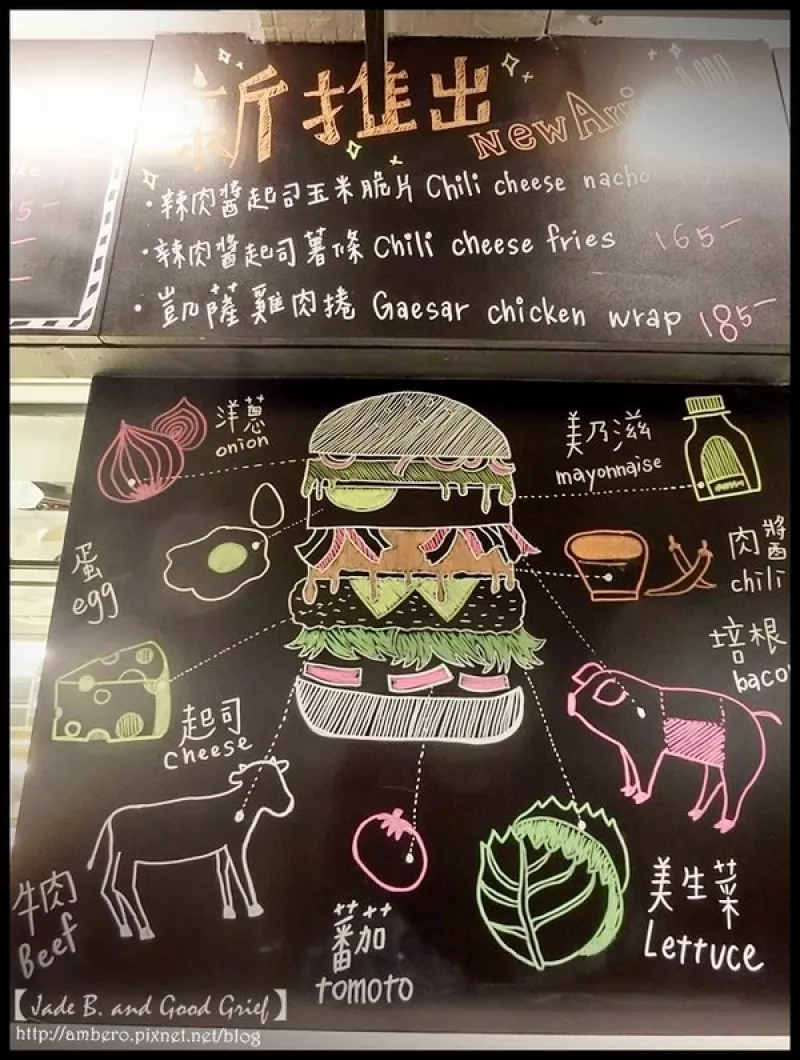 新推出
New
・辣肉醬起司玉米脆片 Chili cheese nacho
・辣肉醬起司薯條 Chili cheese fries 165-
・凱薩雞肉捲 Gaesar chicken wrap 185-
洋蔥
onion
美乃滋
mayonnaise
蛋
egg
肉醬
chili
培根
baco
起司
cheese
牛肉
Beef
蕃加
tomoto
美生菜
Lettuce
【Jade B. and Good Grief】
http://ambero.pixnet.net/blog